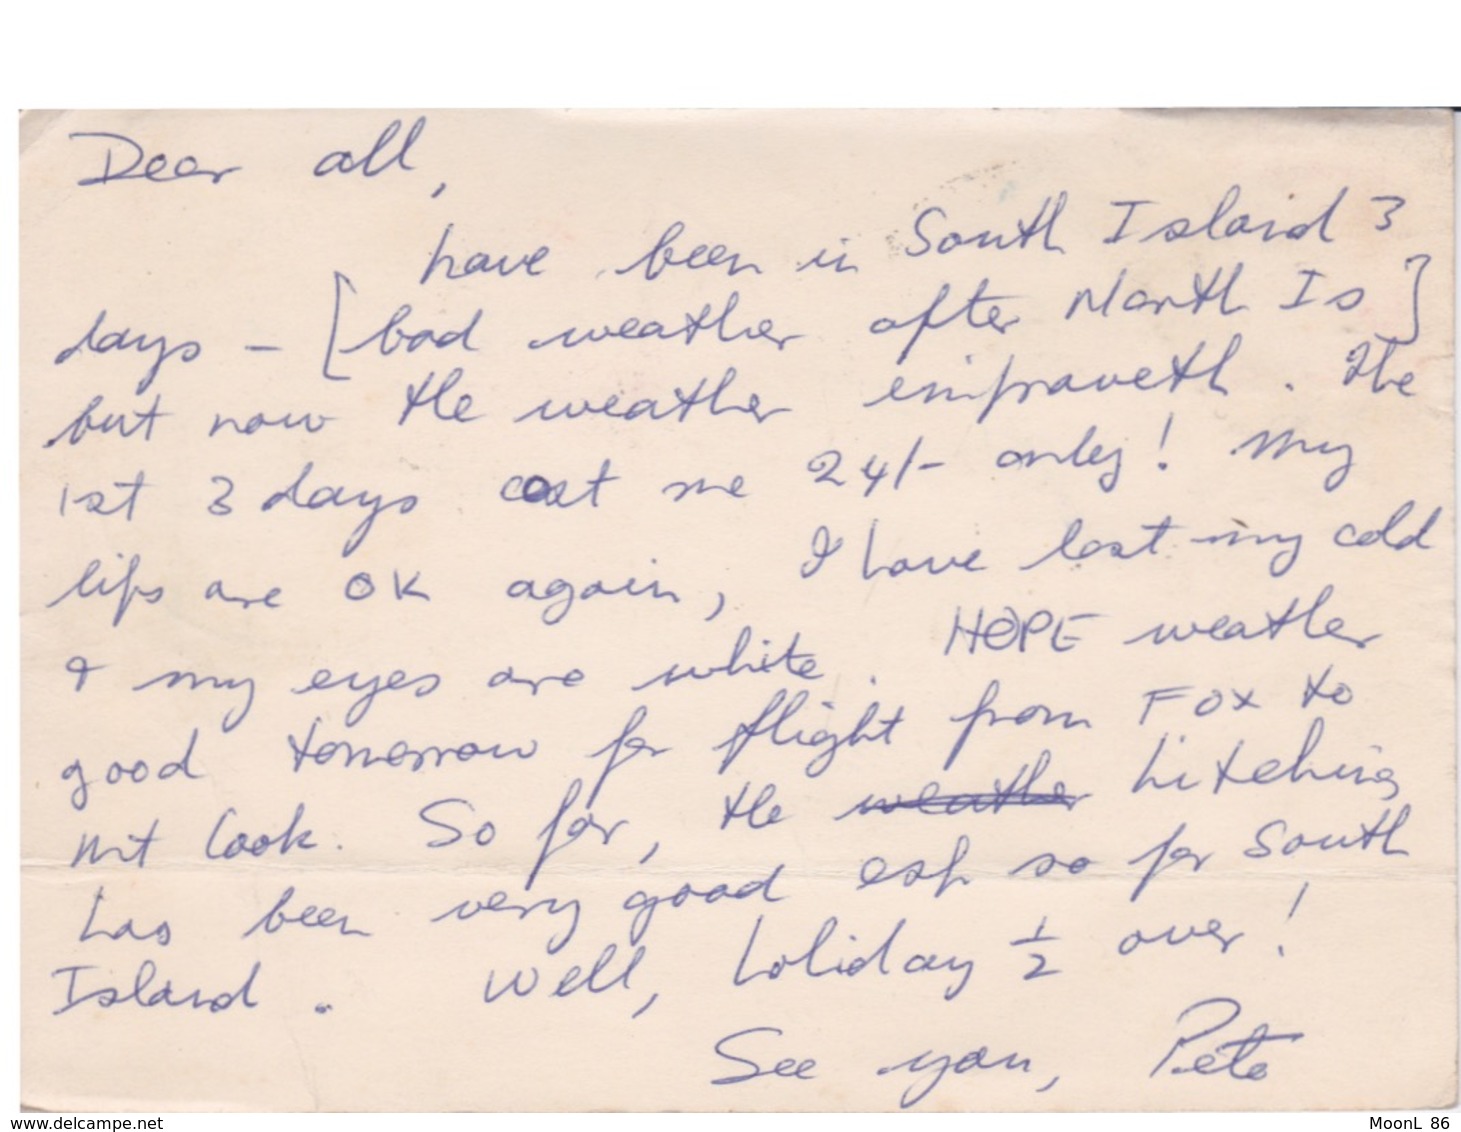 Dear all,
have been in South Island 3
days - [bad weather after North Is]
but now the weather improveth. The
1st 3 days cost me 24/- only! My
lips are OK again, I have lost my cold
& my eyes are white. HOPE weather
good tomorrow for flight from FOX to
Mt Cook. So far, the weather hitching
has been very good esp so far South
Island. Well, holiday 1/2 over!
See you, Pete
delcampe.net
MoonL 86